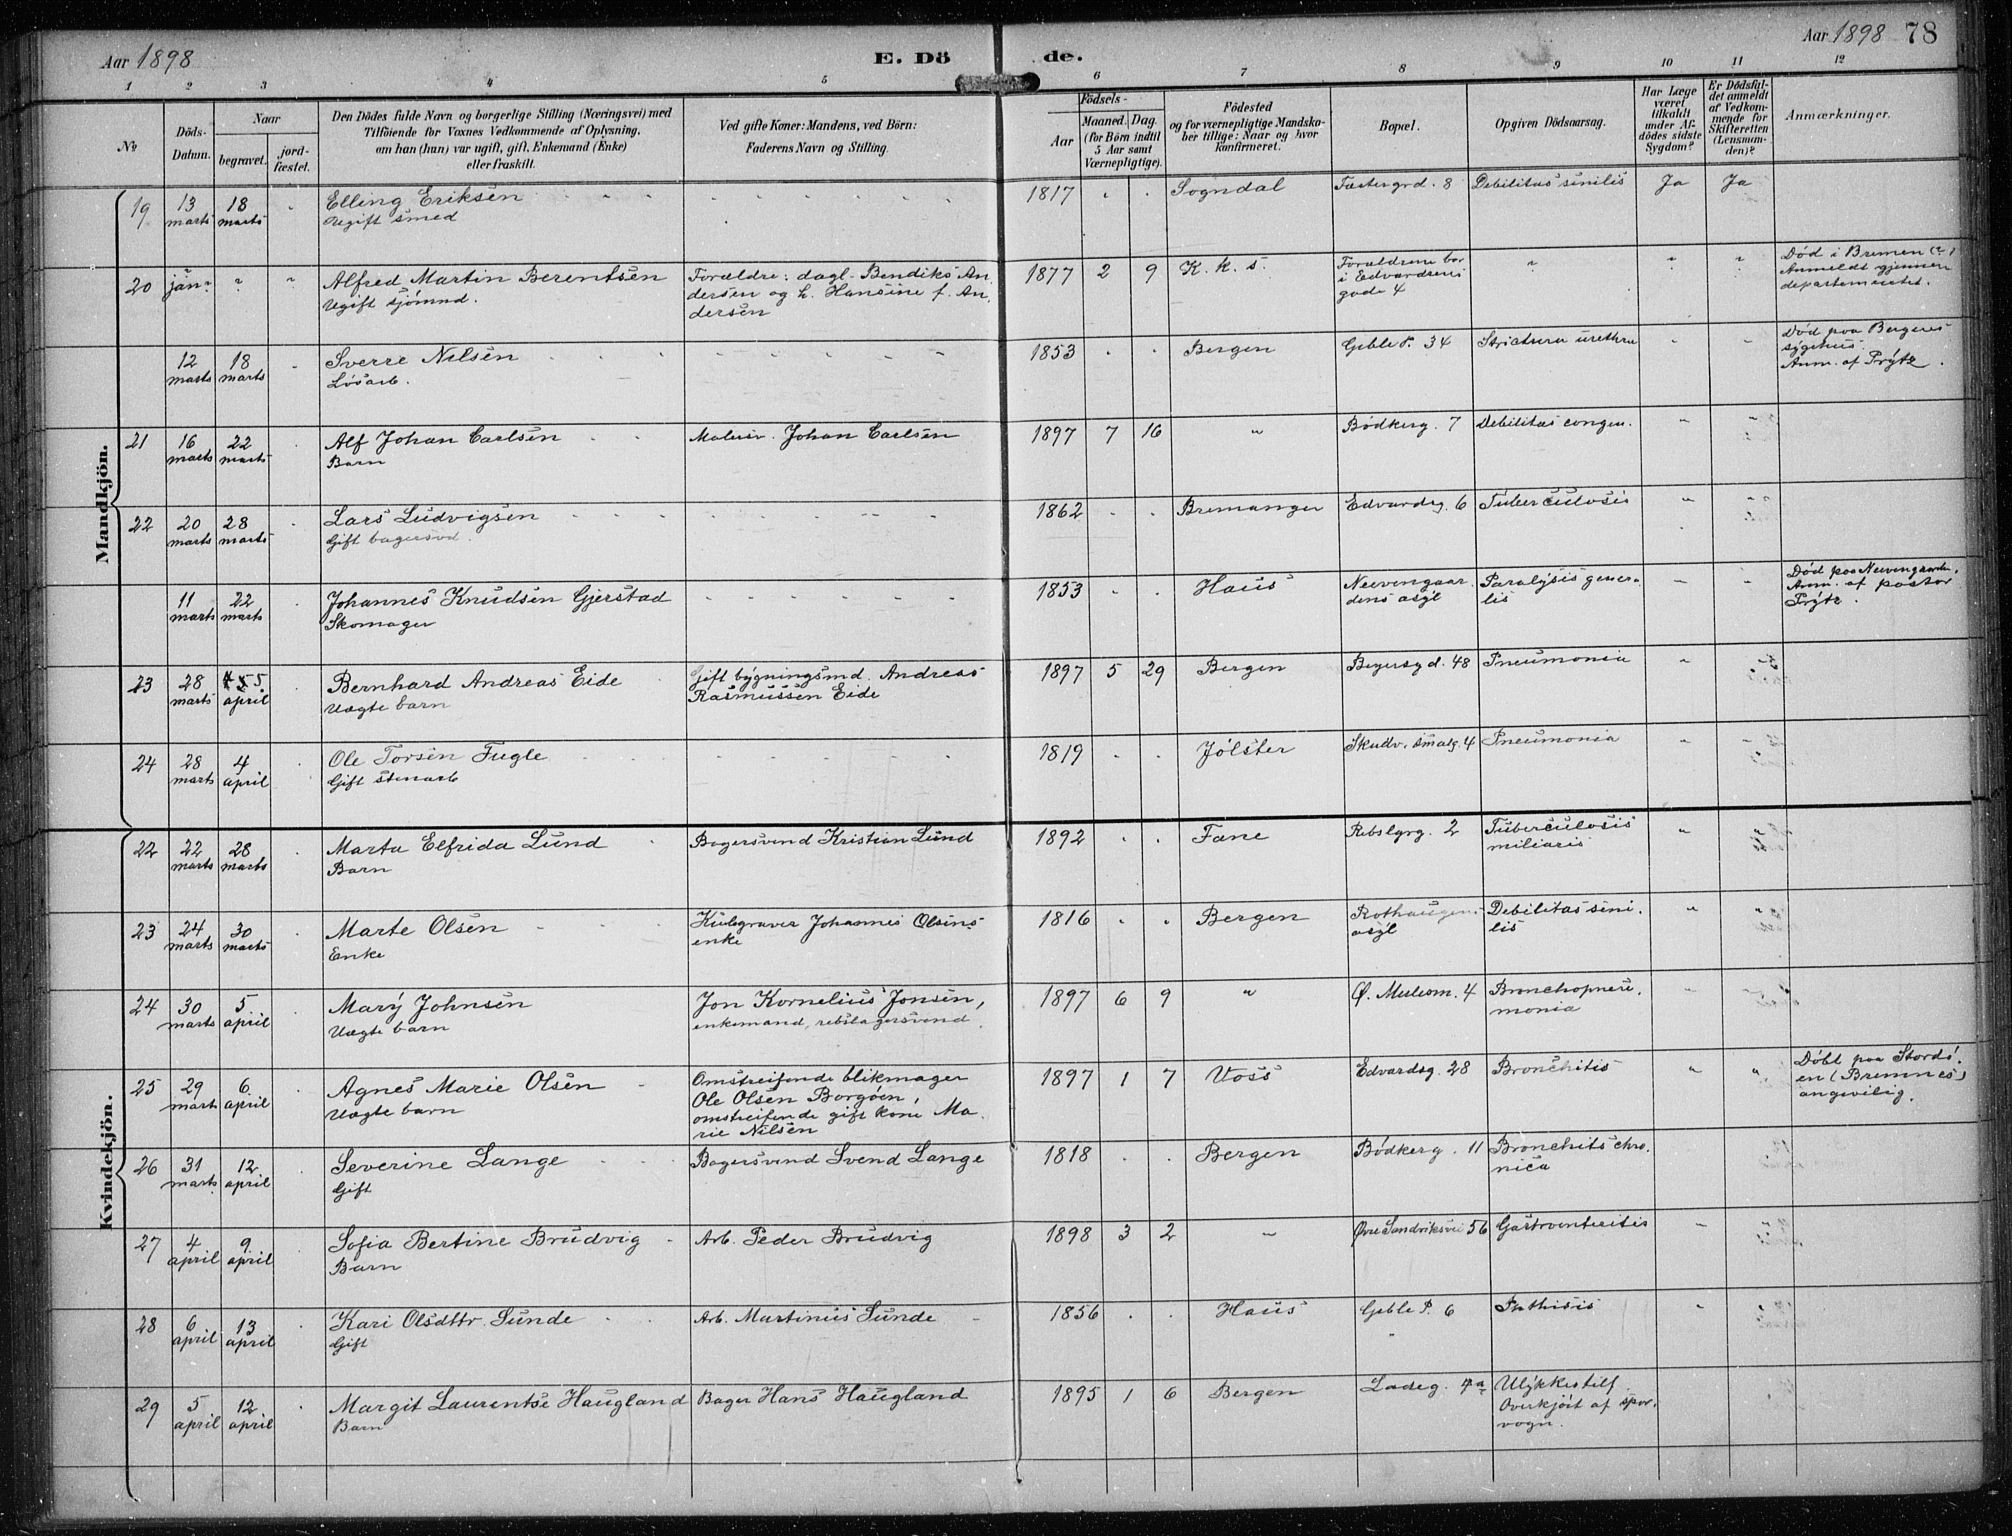 Aar 1898 E. Dö de. Aar 1898 78
1 2 3 4 5 6 7 8 9 10 11 12
No
Döds-Datum.
Naar
begravet.
jord-fæstet.
Den Dödes fulde Navn og borgerlige Stilling (Næringsvei) med
Tilföiende for Voxnes Vedkommende af Oplysning,
om han (hun) var ugift, gift, Enkemand (Enke)
eller fraskilt.
Ved gifte Koner: Mandens, ved Börn:
Faderens Navn og Stilling.
Födsels-
Aar
Maaned. Dag.
(for Börn indtil
5 Aar samt
Værnepligtige).
Födested
og for værnepligtige Mandska-
ber tillige: Naar og hvor
konfirmeret.
Bopæl.
Opgiven Dödsaarsag.
Har Læge
været
tilkaldt
under Af-
dödes sidste
Sygdom?
Er Dödsfal-
det anmeldt
af Vedkom-
mende for
Skifteretten
(Lensman-
den)?
Anmærkninger.
Mandkjön.
19 13 marts 18 marts Elling Eriksen 1817 Sogndal Fæstergrd. 8 Debilitas senilis Ja Ja
Ugift smed
20 jan. Alfred Martin Berentsen Forældre: dagl. Bendiks An- 1877 2 9 K. k. s. Forældrene bor Død i Bremen (?)
Ugift sjómnd. dersen og h. Hansine f. An- i Edvardsens Anmeldt gjennem
dersen gade 4 departementet.
12 marts 18 marts Sverre Nilsen 1853 Bergen Geble P. 34 Strictura urethra Død paa Bergens
Løsarb. sygehus.
Anm. af Prÿtz.
21 16 marts 22 marts Alf Johan Carlsen Malersv. Johan Carlsen 1897 7 16 " Bødkerg. 7 Debilitas congen.
Barn
22 20 marts 28 marts Lars Ludvigsen 1862 Bremanger Edvardsg. 6 Tuberculosis
Gift bagersvd.
11 marts 22 marts Johannes Knudsen Gjerstad 1853 Haus Neevengaar- Paralÿsis genera- Død paa Neevengaarden.
Skomager dens asÿl lis Anm. af pastor
Prÿtz.
23 28 marts 5 april Bernhard Andreas Eide Gift bÿgningsmd. Andreas 1897 5 29 Bergen Beyersgd. 48 Pneumonia
Uægte barn Rasmussen Eide
24 28 marts 4 april Ole Torsen Fugle 1819 Jølster Skudv. smalg. 4 Pneumonia
Gift stenarb
Kvindekjön.
22 22 marts 28 marts Marta Elfrida Lund Bagersvend Kristian Lund 1892 Fane Rebslgrg. 2 Tuberculosis
Barn miliaris
23 24 marts 30 marts Marte Olsen Kulegraver Johannes Olsens 1816 Bergen Rothaugens Debilitas seni-
Enke enke asÿl lis
24 30 marts 5 april Marÿ Johnsen Jon Kornelius Jonsen, 1897 6 9 " Ø. Muleom. 4 Bronchopneu-
Uægte barn enkemand, rebslagersvend. monia
25 29 marts 6 april Agnes Marie Olsen Omstreifende blikmager 1897 1 7 Voss Edvardsg. 28 Bronchitis " " Døbt paa Stordø-
Uægte barn Ole Olsen Borgøen, en (Bremnes)
omstreifende gift kone Ma- angivelig.
rie Nilsen
26 31 marts 12 april Severine Lange Bagersvend Svend Lange 1818 Bergen Bødkerg. 11 Bronchits chro-
Gift nica
27 4 april 9 april Sofia Bertine Brudvig Arb. Peder Brudvig 1898 3 2 " Øvre Sandviksvei 56 Gastroenteritis
Barn
28 6 april 13 april Kari Olsdttr. Sunde Arb. Martinus Sunde 1856 Haus Geble P. 6 Phthisis
Gift
29 5 april 12 april Margit Laurentse Haugland Bager Hans Haugland 1895 1 6 Bergen Ladeg. 7a Ulÿkkestilf.
Barn Overkjørt af spor-
vogn.